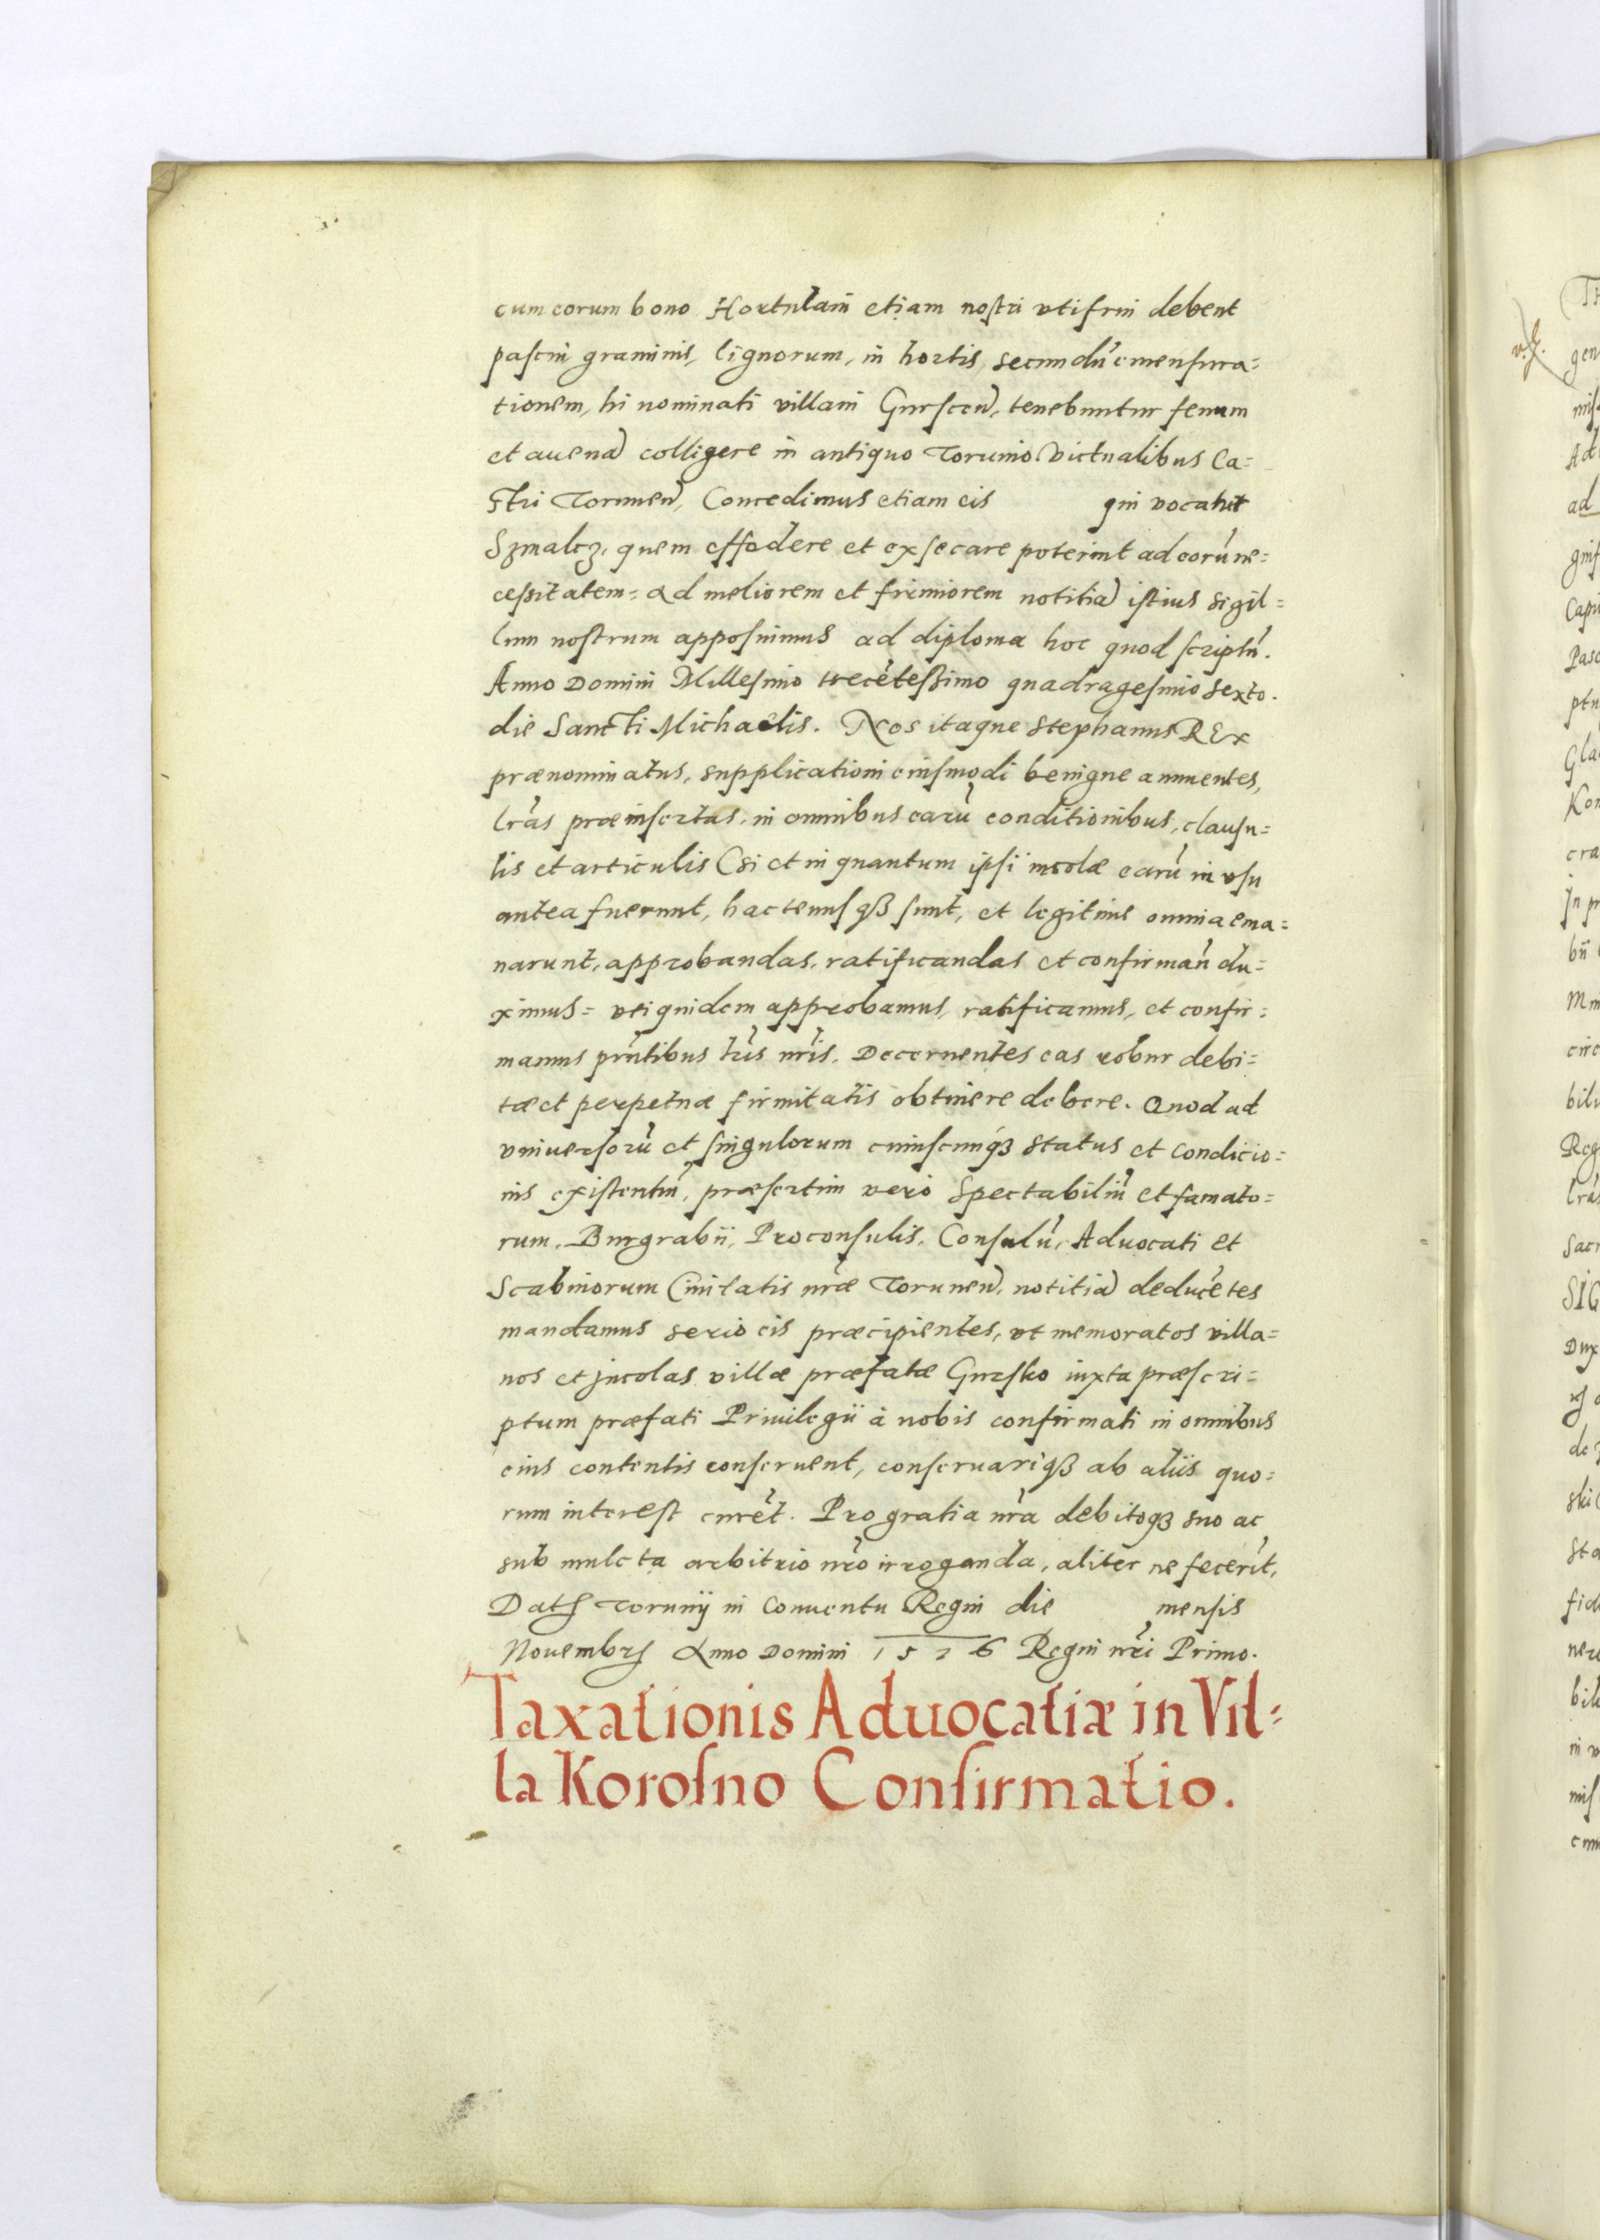 cum eorum bono Hortulani etiam nostri vti frui debent
pascui graminis, lignorum, in hortis, secundū emensura=
tionem, hi nominati villani Gurscen, tenebuntur fenum
et auenā colligere in antiquo Torunio. Victualibus Ca=
stri Torunen, Concedimus etiam eis qui vocatur
Szmalcz, quem effodere et exsecare poterint ad eorū ne=
cessitatem= Ad meliorem et firmiorem notitiā istius sigil=
lum nostrum apposuimus ad diploma hoc quod scriptū.
Anno Domini Millesimo trecētessimo quadragesimo sexto.
die Sancti Michaelis. Nos itaque Stephanus REx
prænominatus, supplicationi eiusmodi benigne annuentes,
lrās præinsertas, in omnibus earū conditionibus, clausu=
lis et articulis (si et in quantum ipsi incolæ earū in vsu
antea fuerunt, hactenusqʒ sunt, et legitime omnia ema=
narunt, approbandas, ratificandas et confirman̄ du=
ximus= vti quidem approbamus, ratificamus, et confir=
mamus pn̄tibus lr̄is nr̄is. Decernentes eas robur debi=
tæ et perpetuæ firmitatis obtinere debere. Quod ad
vniuersorū et singulorum cuiuscunqʒ status et condicio=
nis existentiū, præsertim vero Spectabiliū et famato=
rum, Burgrabii, Proconsulis, Consulū, Aduocati et
Scabinorum Ciuitatis nr̄æ Torunen, notitiā deducētes
mandamus serio eis præcipientes, vt memoratos villa=
nos et Jncolas villæ præfatæ Gursko iuxta præscri=
ptum præfati Priuilegii à nobis confirmati in omnibus
eius contentis conseruent, conseruariqʒ ab aliis quo=
rum interest curēt. Pro gratia nr̄a debitoqʒ suo ac
sub mulcta arbitrio nr̄o irroganda, aliter ne fecerīt,
Datꝭ Torunij in Conuentu Regni die mensis
Nouembrꝭ Anno Domini 1576 Regni nr̄i Primo.
Taxationis Aduocatiæ in Vil=
la Korosno Confirmatio.